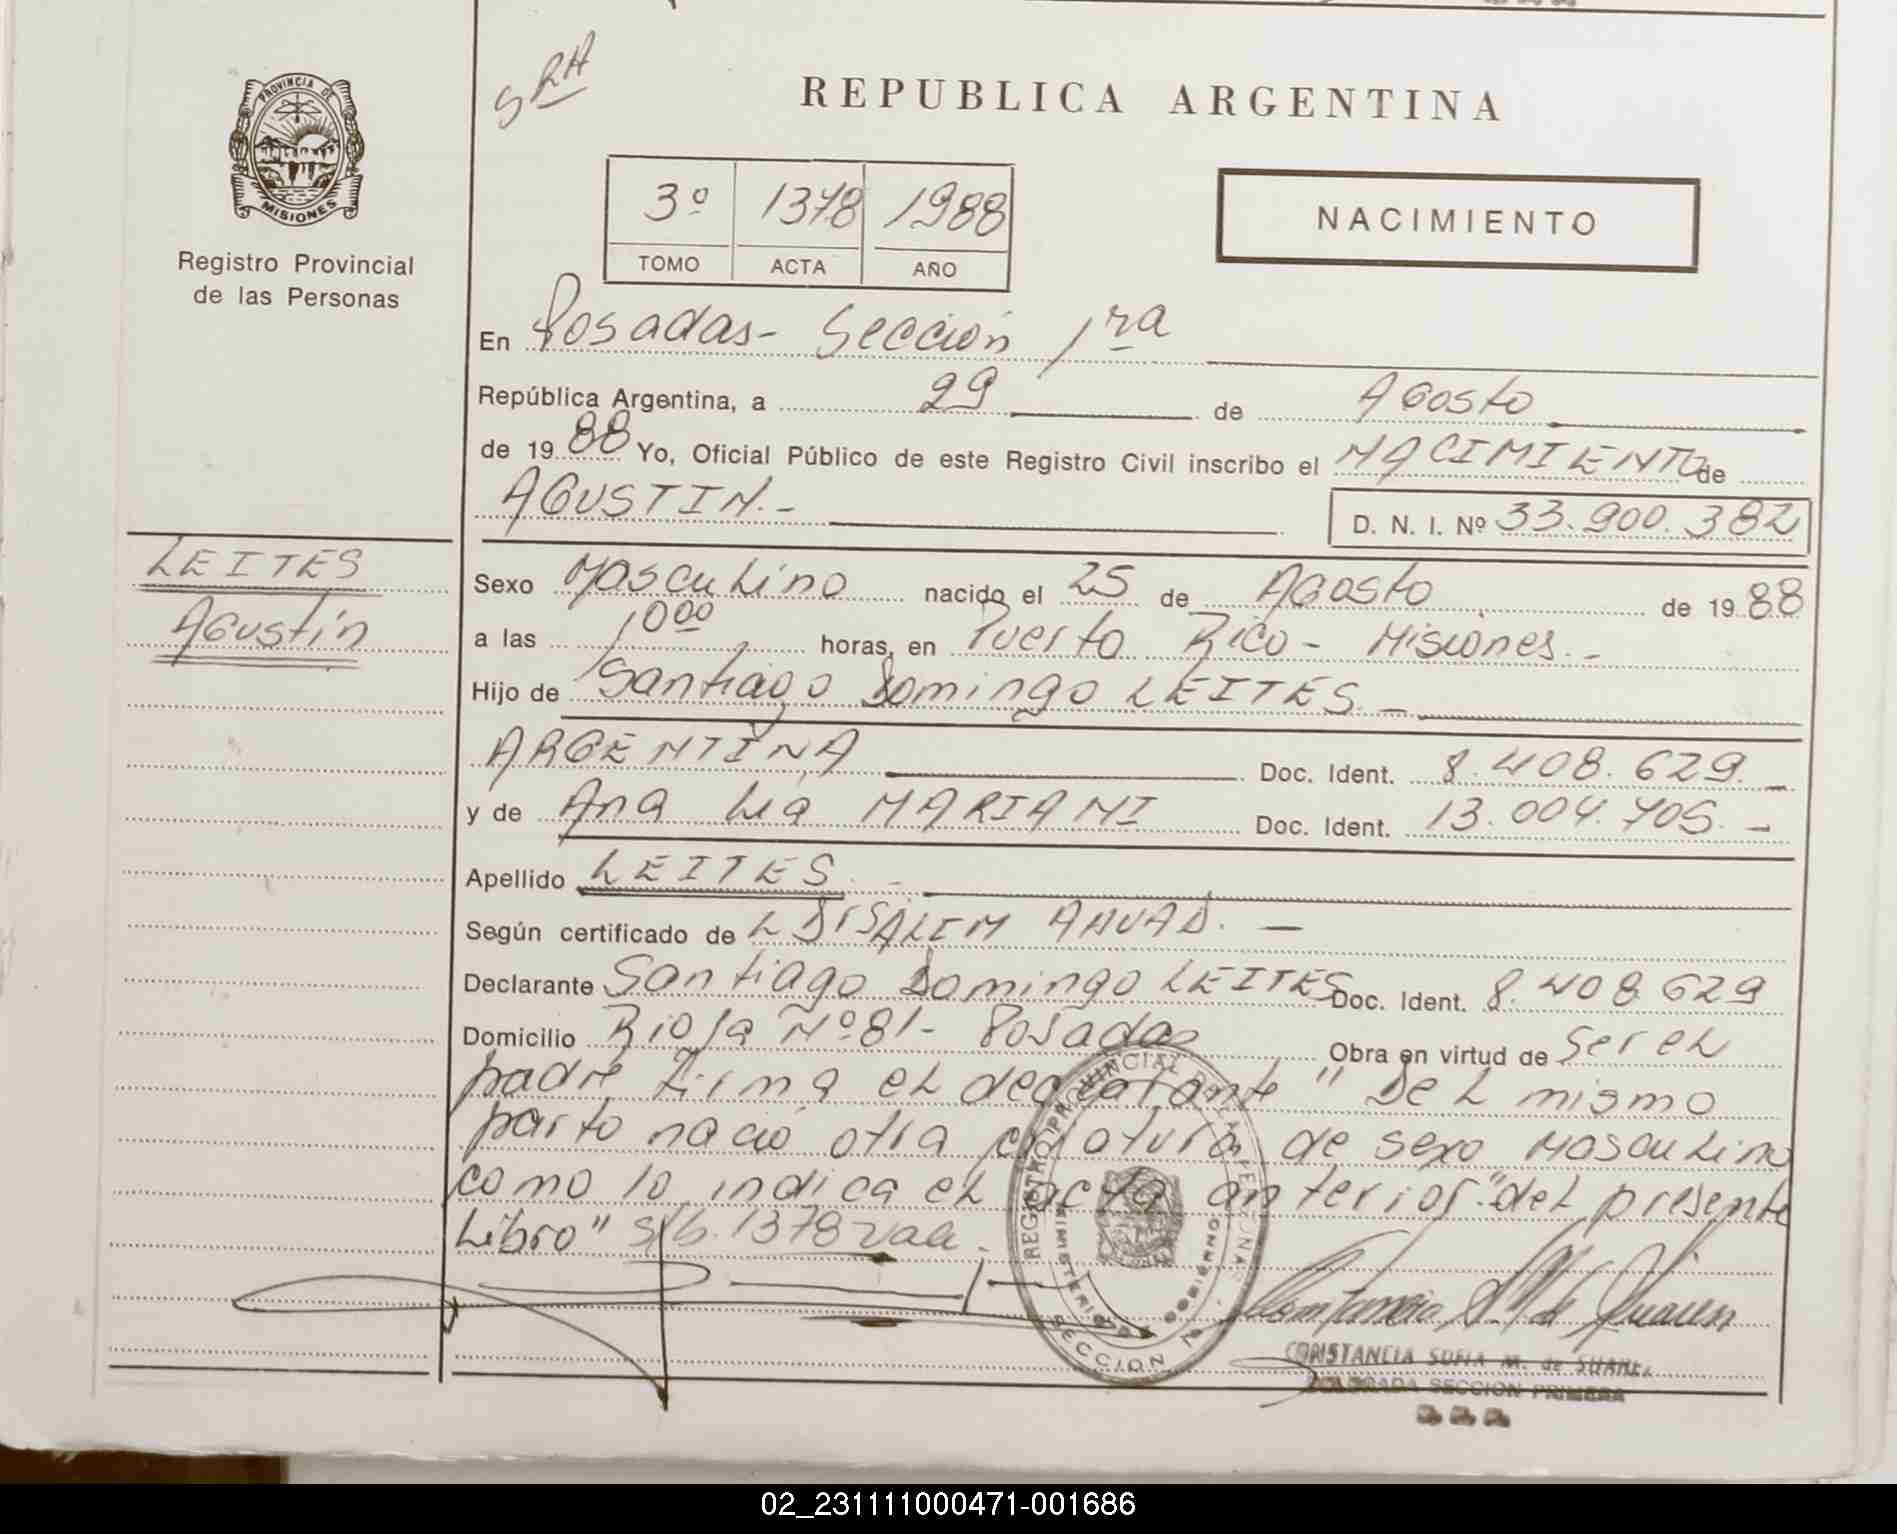 SRA
REPUBLICA ARGENTINA
PROVINCIA DE
MISIONES
Registro Provincial
de las Personas
3º 1378 1988
TOMO ACTA AÑO
NACIMIENTO
En Posadas- Sección 1ra
República Argentina, a 29 de Agosto
de 1988 Yo, Oficial Público de este Registro Civil inscribo el NACIMIENTO de
AGUSTIN.-
D. N. I. Nº 33.900.382
LEITES
Agustín
Sexo Masculino nacido el 25 de Agosto de 1988
a las 1000 horas, en Puerto Rico - Misiones.-
Hijo de Santiago Domingo LEITES.-
ARGENTINA Doc. Ident. 8.408.629.-
y de Ana Lia MARIANI Doc. Ident. 13.004.705.-
Apellido LEITES.-
Según certificado de AHUAD.-
Declarante Santiago Domingo LEITES Doc. Ident. 8.408.629
Domicilio Rioja Nº 81- Posadas Obra en virtud de ser el
padre Firma el declarante " Del mismo
parto nació otra criatura de sexo Masculino
como lo indica el acta anterior "del presente
Libro" s/b. 1378 vale.
REGISTRO PROVINCIAL DE LAS PERSONAS
MINISTERIO DE GOBIERNO
SECCION 1
Constancia S. M. de Suarez
CONSTANCIA SOFIA M. de SUAREZ
SECCION PRIMERA
02_231111000471-001686